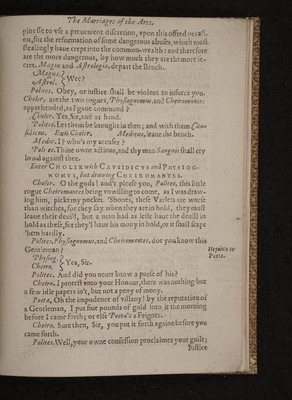 The Marriages of the Arts.
plnesse to vse a præcunient discretion, vpon this offerd occasi-
on, for the reformation of some dangerous abuses, which most
stealingly haue crept into the common-wealth: and therefore
are the more dangerous, by how much they are the more se-
cret. Magus and Astrologia, depart the Bench.
Magus.
Astrol. } Wee?
Polites. Obey, or iustice shall be violent to inforce you.
Choler, are the two rogues, Physiognomus, and Cheiromantes
apprehended, as I gaue command?
Choler. Yes, Sir, and at hand.
Polites. Let them be brought in then; and with them Cau-
sidicus. Exit Choler. Medicus, leaue the bench.
Medic. I? who's my accuser?
Polites. Thine owne actions, and thy man Sanguis shall cry
loud against thee.
Enter CHOLER with CAVSIDICVS and PHYSIOG-
NOMVS, but drawing CHEIROMANTES.
Choler. O the gods! and't please you, Polites, this little
rogue Cheiromantes being vnwilling to come, as I was draw-
ing him, pickt my pocket. 'Sbones, these Varlets are worse
than witches, for they say when they are in hold, they must
leaue their deuill, but a man had as leife haue the deuill in
hold as these, for they'l haue his mony in hold, or it shall scape
'hem hardly.
Polites. Physiognomus, and Cheiromantes, doe you know this
Gentleman?
Hepoints to
Poeta.
Physiog.
Cheiro. } Yes, Sir.
Polites. And did you neuer know a purse of his?
Cheiro. I protest vnto your Honour, there was nothing but
a few idle papers in't, but not a peny of mony.
Poeta. Oh the impudence of villany! by the reputation of
a Gentleman, I put fiue pounds of gold into it the morning
before I came forth; or else Poeta's a Feigner.
Cheiro. Sure then, Sir, you put it forth againe before you
came forth.
Polites. Well, your owne confession proclaimes your guilt;
Iustice